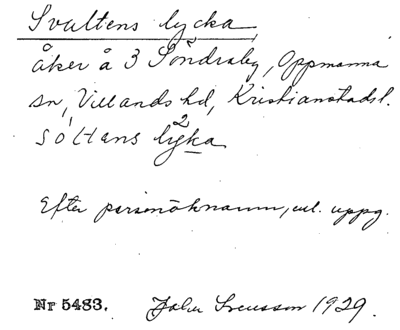 Svultens lycka
åker å 3 Söndraby, Oppmanna
sn, Villands hd, Kristianstadsl.
sóltans lyka
2
Efter personöknamn, enl. uppg.
Nr 5483. John Svensson 1929.